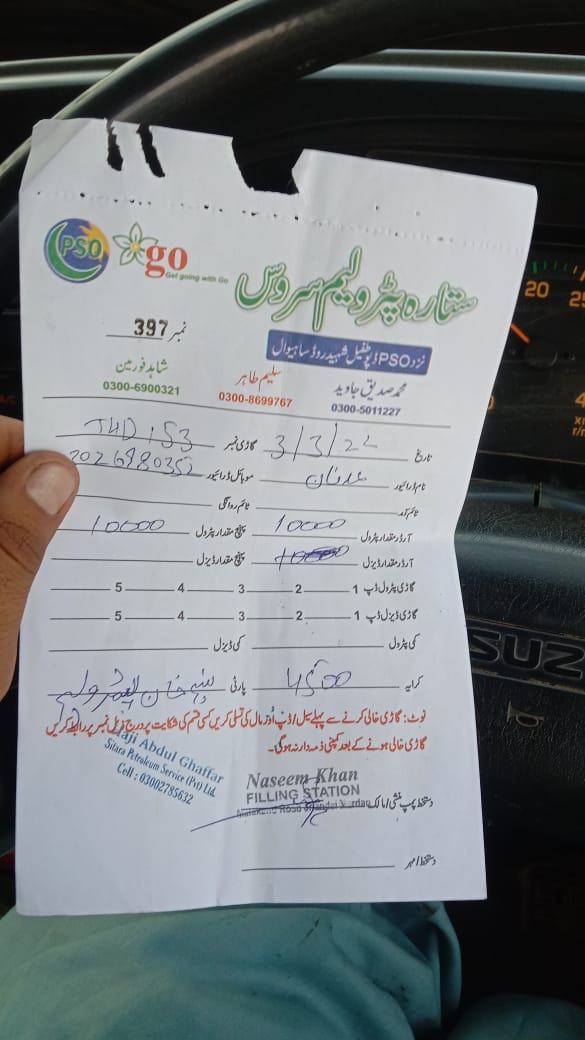 PSO go
Get going with Go
ستارہ پٹرولیم سروس
نمبر 397
نزد PSO ڈپو طفیل شہید روڈ ساہیوال
محمد صدیق جاوید سلیم طاہر شاہد فورمین
0300-5011227 0300-8699767 0300-6900321
تاریخ 3/3/22 گاڑی نمبر TUD 153
نام ڈرائیور عدنان موبائل ڈرائیور
ٹائم آمد ٹائم روانگی
آرڈر مقدار پٹرول 10000 پہنچ مقدار پٹرول 10000
آرڈر مقدار ڈیزل پہنچ مقدار ڈیزل
گاڑی پٹرول ڈپ 1 2 3 4 5
گاڑی ڈیزل ڈپ 1 2 3 4 5
کمی پٹرول کمی ڈیزل
کرایہ 4500 پارٹی
نوٹ: گاڑی خالی کرنے سے پہلے سیل/ڈپ اور مال کی تسلی کریں کسی قسم کی شکایت پر درج ذیل نمبر پر رابطہ کریں
گاڑی خالی ہونے کے بعد کمپنی ذمہ دار نہ ہوگی۔
Haji Abdul Ghaffar
Sitara Petroleum Service (Pvt) Ltd.
Cell : 03002785632
Naseem Khan
FILLING STATION
Malakand Road
دستخط پمپ منشی/مالک
دستخط/مہر
SUZ
20